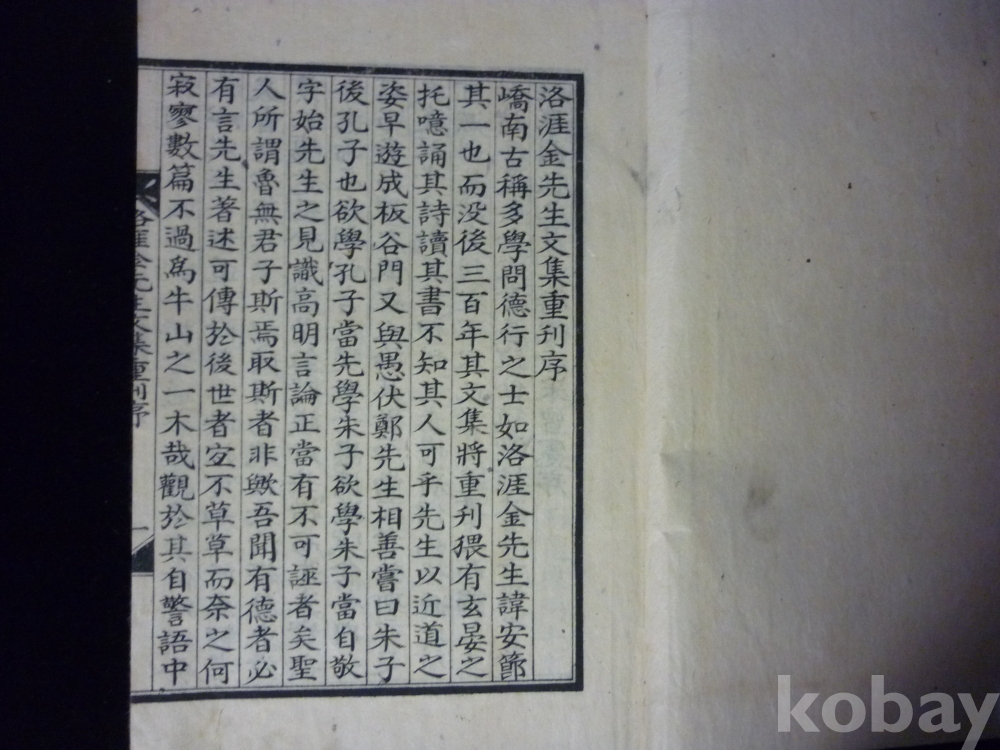 洛涯金先生文集重刊序
嶠南古稱多學問德行之士如洛涯金先生諱安節
其一也而没後三百年其文集將重刊猥有玄晏之
托噫誦其詩讀其書不知其人可乎先生以近道之
姿早遊成板谷門又與愚伏鄭先生相善嘗曰朱子
後孔子也欲學孔子當先學朱子欲學朱子當自敬
字始先生之見識高明言論正當有不可誣者矣聖
人所謂魯無君子斯焉取斯者非歟吾聞有德者必
有言先生著述可傳於後世者宜不草草而奈之何
寂寥數篇不過爲牛山之一木哉觀於其自警語中
洛涯金先生文集重刊序
一
kobay